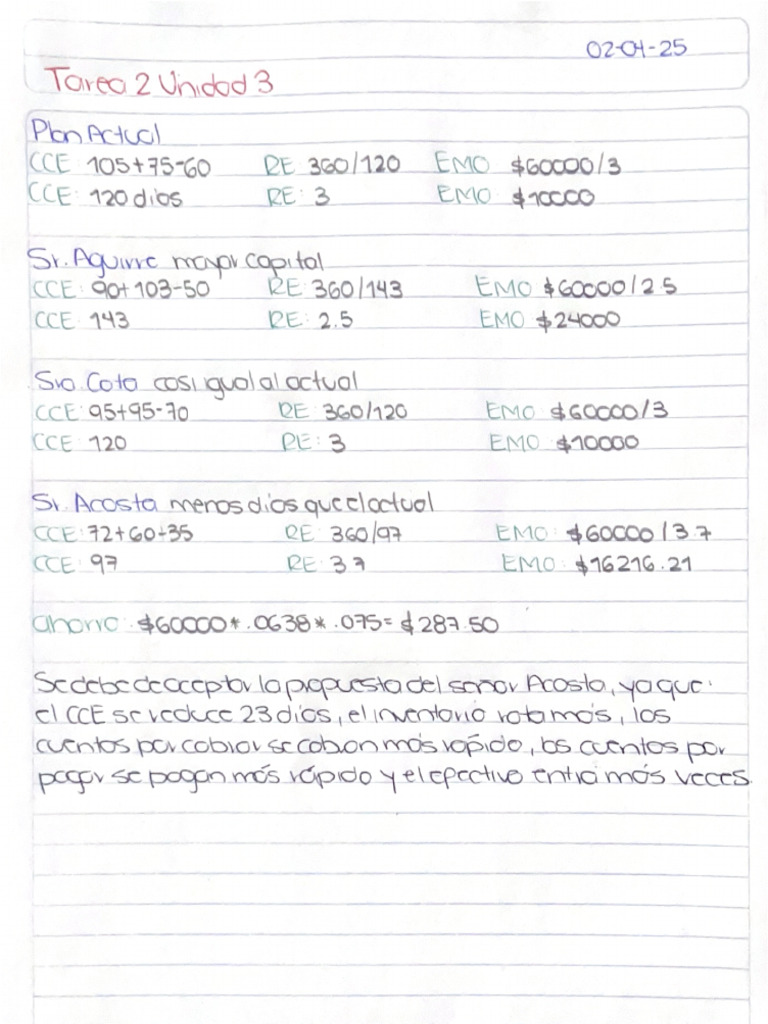 02-04-25
Tarea 2 Unidad 3
Plan Actual
CCE: 105+75-60 RE: 360/120 EMO: $60000/3
CCE: 120 dias RE: 3 EMO: $10000
Sr. Aguirre mayor capital
CCE: 90+103-50 RE: 360/143 EMO: $60000/2.5
CCE: 143 RE: 2.5 EMO: $24000
Sra. Cota casi igual al actual
CCE: 95+95-70 RE: 360/120 EMO: $60000/3
CCE: 120 RE: 3 EMO: $10000
Sr. Acosta menos dias que el actual
CCE: 72+60-35 RE: 360/97 EMO: $60000/3.7
CCE: 97 RE: 3.7 EMO: $16216.21
ahorro: $60000* .0638* .075= $287.50
Se debe de aceptar la propuesta del señor Acosta, ya que
el CCE se reduce 23 dias, el inventario rota más, los
cuentas por cobrar se cobran más rápido, las cuentas por
pagar se pagan más rápido y el efectivo entra más veces.